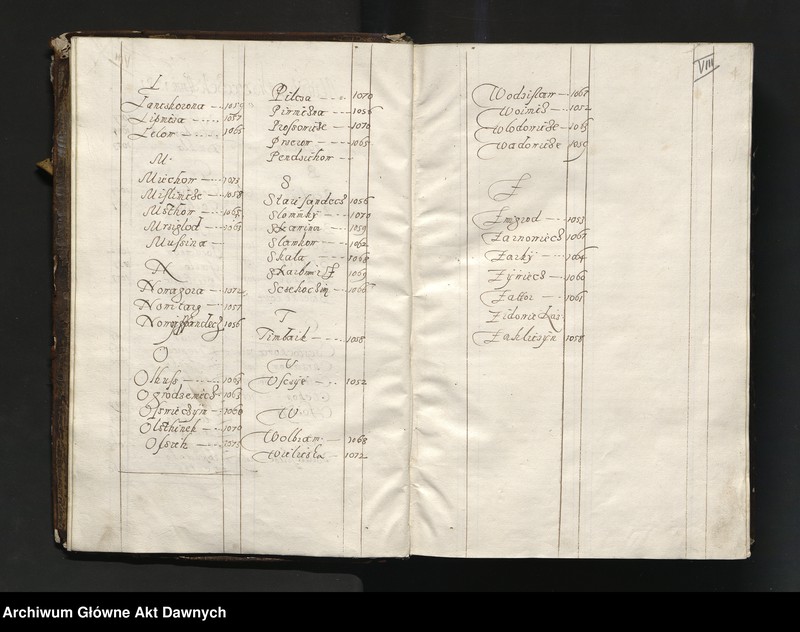 L
Lanckorona — 1059
Lipnica — 1057
Lelow — 1065
M.
Miechow — 1073
Mislimice — 1058
Msthow — 1065
Mruglod — 1065
Mussina —
N
Novagora — 1072
Novitarg — 1057
1056
O
Olkuss — 1063
Ogrodzeniec — 1063
1060
Olsthinek — 1070
Ossiek — 1073
Pilcza — 1070
Piwniczna — 1056
Prossowice — 1070
1065
Pendzichow —
S
Starisandecz 1056
Slomniky — 1070
Skawina — 1059
Slawkow — 1062
Skala — 1068
1069
1066
T
Timbark — 1058
V
Vsczye — 1052
W
Wolbram — 1068
Wieliczka — 1072
VIII
Wodzislaw — 1068
Woinicz — 1052
Wlodowicze — 1065
Wadowicze — 1059
Z
Zmigrod — 1053
Zarnowiecz 1068
Zarky — 1064
1060
Zattor — 1061
Zakliczyn 1058
Archiwum Główne Akt Dawnych